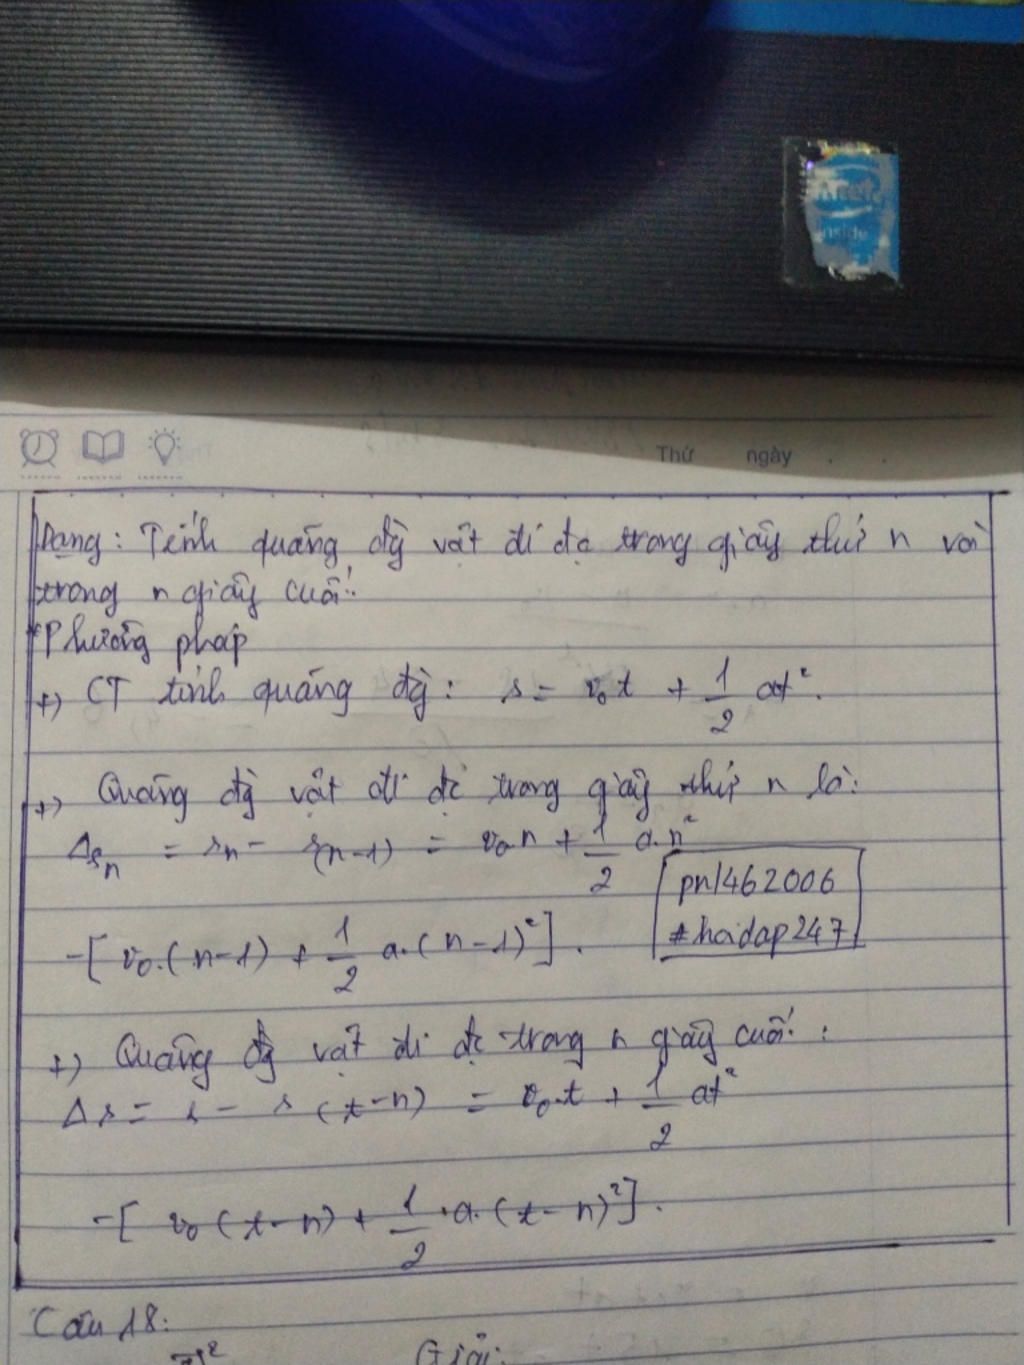 intel
inside
Thứ ngày
Dạng: Tính quãng đg̀ vật đi đc trong giây thứ n và
trong n giây cuối:
*Phương pháp
+) CT tính quãng đg̀: s = v₀t + 1/2 at².
+) Quãng đg̀ vật đi đc trong giây thứ n là:
Δsₙ = sₙ - s(n-1) = v₀.n + 1/2 a.n²
pn1462006
#hoidap247
-[v₀.(n-1) + 1/2 a.(n-1)²].
+) Quãng đg̀ vật đi đc trong n giây cuối:
Δs = s - s(t-n) = v₀.t + 1/2 at²
-[v₀(t-n) + 1/2 .a.(t-n)²].
Câu 18:
Giải: